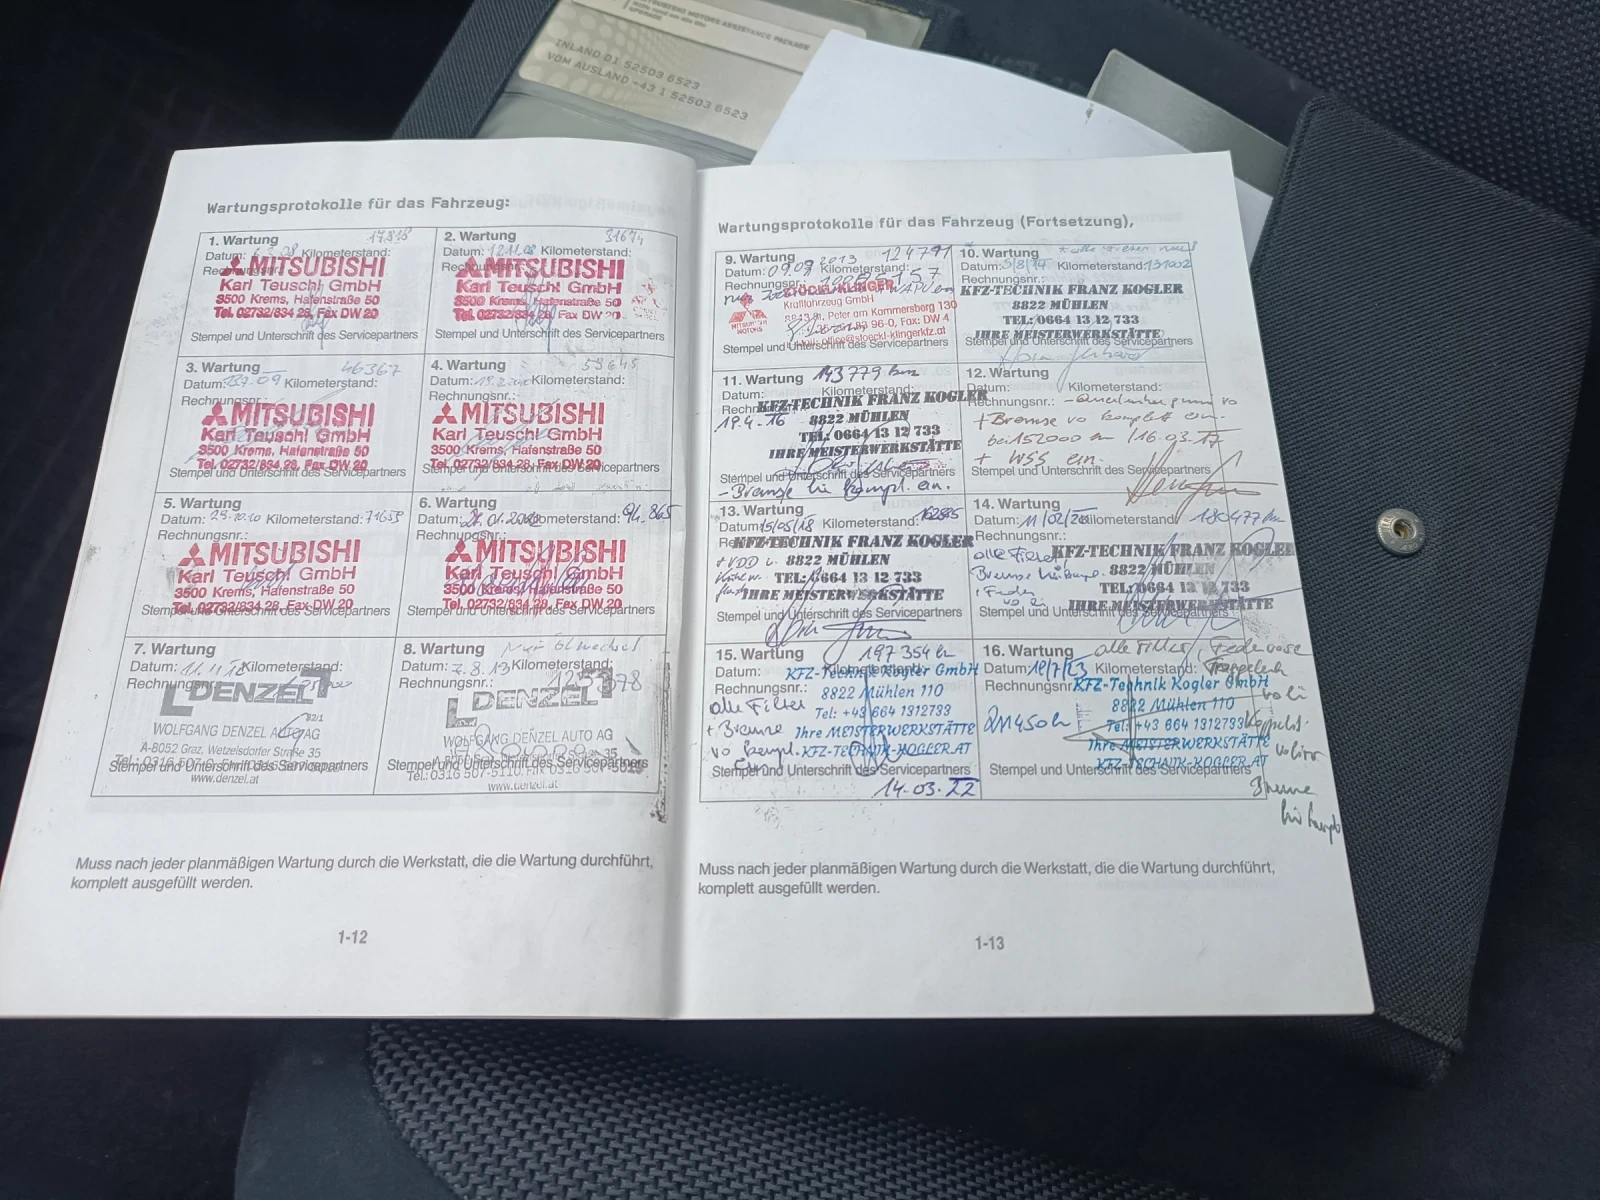 MITSUBISHI MOTORS ASSISTANCE PACKAGE
INLAND 01 52503 6523
VOM AUSLAND +43 1 52503 6523
Wartungsprotokolle für das Fahrzeug:
1. Wartung 17.818
Datum: Kilometerstand:
MITSUBISHI
Karl Teuschl GmbH
3500 Krems, Hafenstraße 50
Tel. 02732/834 28, Fax DW 20
Stempel und Unterschrift des Servicepartners
2. Wartung 31674
Datum: 12.11.08 Kilometerstand:
MITSUBISHI
Karl Teuschl GmbH
3500 Krems, Hafenstraße 50
Tel. 02732/834 28, Fax DW 20
Stempel und Unterschrift des Servicepartners
3. Wartung 46367
Datum: Kilometerstand:
Rechnungsnr.:
MITSUBISHI
Karl Teuschl GmbH
3500 Krems, Hafenstraße 50
Tel. 02732/834 28, Fax DW 20
Stempel und Unterschrift des Servicepartners
4. Wartung
Datum: Kilometerstand:
Rechnungsnr.:
MITSUBISHI
Karl Teuschl GmbH
3500 Krems, Hafenstraße 50
Tel. 02732/834 28, Fax DW 20
Stempel und Unterschrift des Servicepartners
5. Wartung
Datum: 25.10.10 Kilometerstand: 71659
Rechnungsnr.:
MITSUBISHI
Karl Teuschl GmbH
3500 Krems, Hafenstraße 50
Tel. 02732/834 28, Fax DW 20
Stempel und Unterschrift des Servicepartners
6. Wartung
Datum: Kilometerstand: 94.865
Rechnungsnr.:
MITSUBISHI
Karl Teuschl GmbH
3500 Krems, Hafenstraße 50
Tel. 02732/834 28, Fax DW 20
Stempel und Unterschrift des Servicepartners
7. Wartung
Datum: Kilometerstand:
Rechnungsnr.:
DENZEL
WOLFGANG DENZEL AUTO AG
A-8052 Graz, Wetzelsdorfer Straße 35
Stempel und Unterschrift des Servicepartners
www.denzel.at
8. Wartung Nur Ölwechsel
Datum: 7.8.13 Kilometerstand:
Rechnungsnr.:
DENZEL
WOLFGANG DENZEL AUTO AG
Stempel und Unterschrift des Servicepartners
Tel.: 0316 507-5110, Fax 0316 507-5615
www.denzel.at
Muss nach jeder planmäßigen Wartung durch die Werkstatt, die die Wartung durchführt,
komplett ausgefüllt werden.
1-12
Wartungsprotokolle für das Fahrzeug (Fortsetzung),
9. Wartung 124791
Datum: 09.09 2013 Kilometerstand:
Rechnungsnr.:
STÖCKL KLINGER
Kraftfahrzeug GmbH
MITSUBISHI MOTORS
Peter am Kammersberg 130
96-0, Fax: DW 4
office@stoeckl-klingerkfz.at
Stempel und Unterschrift des Servicepartners
10. Wartung
Datum: 5/8/14 Kilometerstand: 131002
Rechnungsnr.:
KFZ-TECHNIK FRANZ KOGLER
8822 MÜHLEN
TEL: 0664 13 12 733
IHRE MEISTERWERKSTÄTTE
Stempel und Unterschrift des Servicepartners
11. Wartung 143779 km
Datum: Kilometerstand:
KFZ-TECHNIK FRANZ KOGLER
19.4.16 8822 MÜHLEN
TEL: 0664 13 12 733
IHRE MEISTERWERKSTÄTTE
Stempel und Unterschrift des Servicepartners
- Bremse hi kompl. ern.
12. Wartung
Datum: Kilometerstand:
Rechnungsnr.: vo
+ Bremse vo komplett ern.
bei 152000 km /16.03.17
+ WSS ern.
Stempel und Unterschrift des Servicepartners
13. Wartung
Datum: 15/05/18 Kilometerstand:
KFZ-TECHNIK FRANZ KOGLER
8822 MÜHLEN
TEL: 0664 13 12 733
IHRE MEISTERWERKSTÄTTE
Stempel und Unterschrift des Servicepartners
14. Wartung
Datum: 11/02/20 Kilometerstand: 180477 km
Rechnungsnr.:
alle Filter KFZ-TECHNIK FRANZ KOGLER
Bremse hi kompl. 8822 MÜHLEN
TEL: 0664 13 12 733
IHRE MEISTERWERKSTÄTTE
Stempel und Unterschrift des Servicepartners
15. Wartung 197354 km
Datum: Kilometerstand:
KFZ-Technik Kogler GmbH
Rechnungsnr.: 8822 Mühlen 110
alle Filter Tel: +43 664 1312733
+ Bremse Ihre MEISTERWERKSTÄTTE
vo kompl. KFZ-TECHNIK-KOGLER.AT
Stempel und Unterschrift des Servicepartners
14.03.22
16. Wartung alle Filter, Feder vore
Datum: 19/7/23 Kilometerstand:
Rechnungsnr.: KFZ-Technik Kogler GmbH
8822 Mühlen 110
211450 km Tel: +43 664 1312733
Ihre MEISTERWERKSTÄTTE
KFZ-TECHNIK-KOGLER.AT
Stempel und Unterschrift des Servicepartners
Bremse
hi kompl
Muss nach jeder planmäßigen Wartung durch die Werkstatt, die die Wartung durchführt,
komplett ausgefüllt werden.
1-13